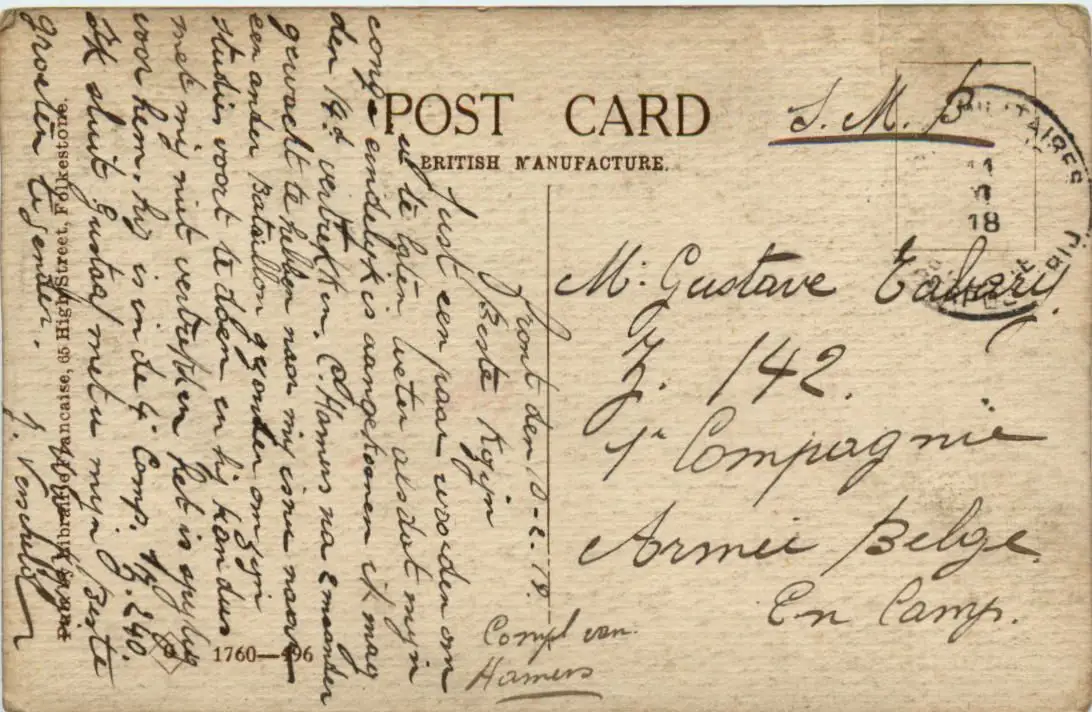 POST CARD
BRITISH MANUFACTURE.
S. M. B
MILITAIRES
11
II
18
Mr. Gustave
Z. 142.
1e Compagnie
Armée Belge
En Camp.
Compl van
Hamers
Front den 10-2-18.
Beste Kozijn
Just een paar woorden om
u te laten weten als dat mijn
congé eindelijk is aangekomen ik mag
den 14d vertrekken. C. Hamers na 2 maanden
gewacht te hebben naar mij is nu naar
een ander Bataillon gezonden om zijn
studies voort te doen en hij kan dus
met mij niet vertrekken het is spijtig
voor hem. hij is in de 4e Comp. Z. 240.
Ik sluit Gustaaf met u mijn Beste
groeten te zenden.
J. Versch
Librairie Francaise, 65 High Street, Folkestone.
1760—496